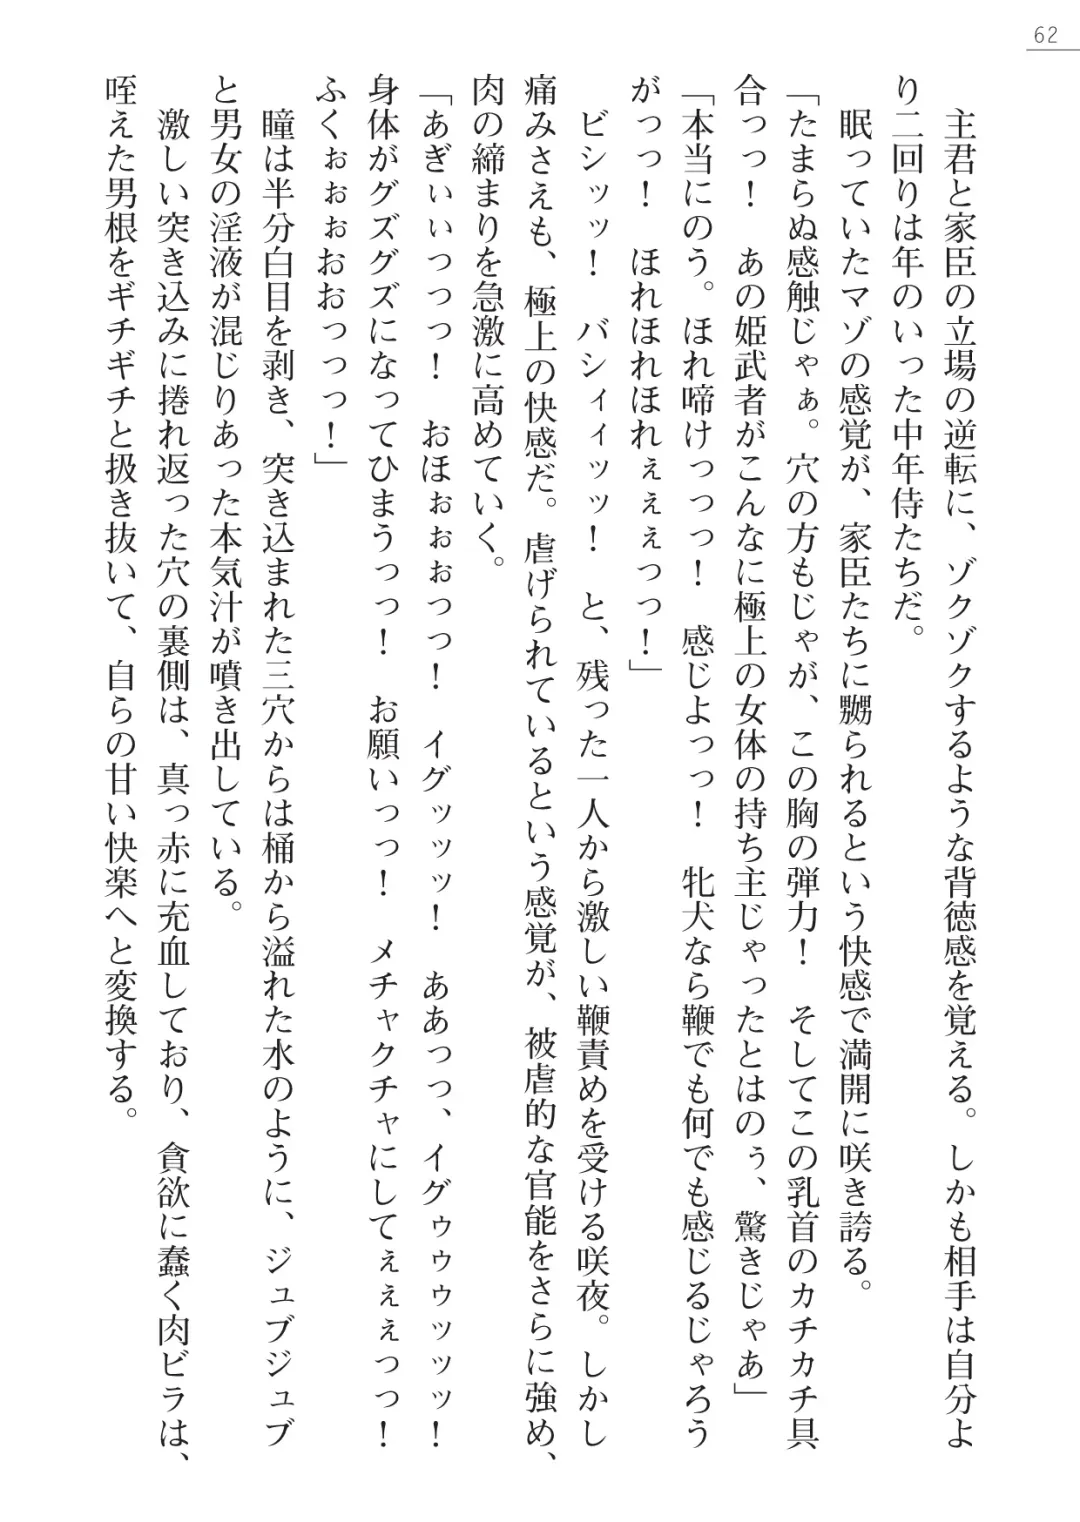 62
主君と家臣の立場の逆転に、ゾクゾクするような背徳感を覚える。しかも相手は自分よ
り二回りは年のいった中年侍たちだ。
眠っていたマゾの感覚が、家臣たちに嬲られるという快感で満開に咲き誇る。
「たまらぬ感触じゃぁ。穴の方もじゃが、この胸の弾力！　そしてこの乳首のカチカチ具
合っっ！　あの姫武者がこんなに極上の女体の持ち主じゃったとはのぅ、驚きじゃあ」
「本当にのう。ほれ啼けっっっ！　感じよっっ！　牝犬なら鞭でも何でも感じるじゃろう
がっっ！　ほれほれほれぇぇぇっっ！」
ビシッッ！　バシィィッッ！　と、残った一人から激しい鞭責めを受ける咲夜。しかし
痛みさえも、極上の快感だ。虐げられているという感覚が、被虐的な官能をさらに強め、
肉の締まりを急激に高めていく。
「あぎぃぃっっっ！　おほぉぉぉっっ！　イグッッッ！　ああっっ、イグゥゥゥッッッ！
身体がグズグズになってひまうっっ！　お願いっっ！　メチャクチャにしてぇぇぇっっ！
ふくぉぉぉおおっっっ！」
瞳は半分白目を剥き、突き込まれた三穴からは桶から溢れた水のように、ジュブジュブ
と男女の淫液が混じりあった本気汁が噴き出している。
激しい突き込みに捲れ返った穴の裏側は、真っ赤に充血しており、貪欲に蠢く肉ビラは、
咥えた男根をギチギチと扱き抜いて、自らの甘い快楽へと変換する。